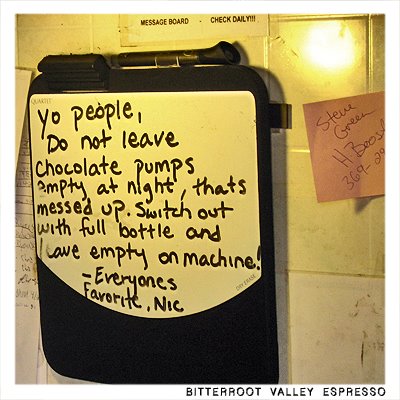 MESSAGE BOARD - CHECK DAILY!!!
QUARTET
Yo people,
Do not leave
Chocolate pumps
empty at night, thats
messed up. Switch out
with full bottle and
leave empty on machine!
- Everyones
Favorite, Nic
DRY ERASE
Steve
Green
369-29
BITTERROOT VALLEY ESPRESSO